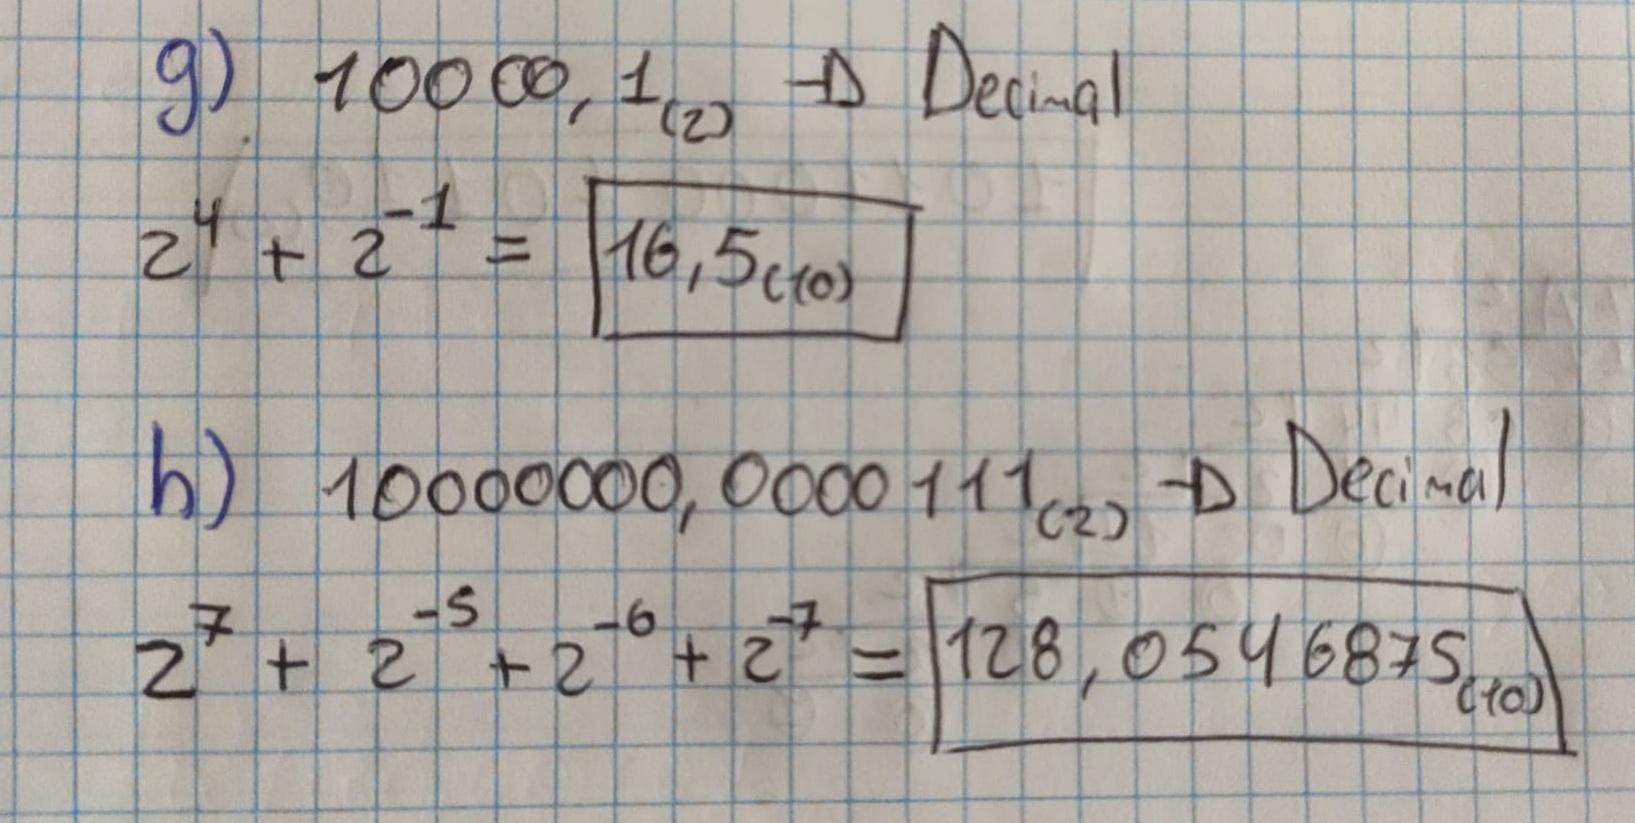 g) 10000,1₍₂₎ → Decimal
2⁴ + 2⁻¹ = 16,5₍₁₀₎
h) 10000000,0000111₍₂₎ → Decimal
2⁷ + 2⁻⁵ + 2⁻⁶ + 2⁻⁷ = 128,0546875₍₁₀₎